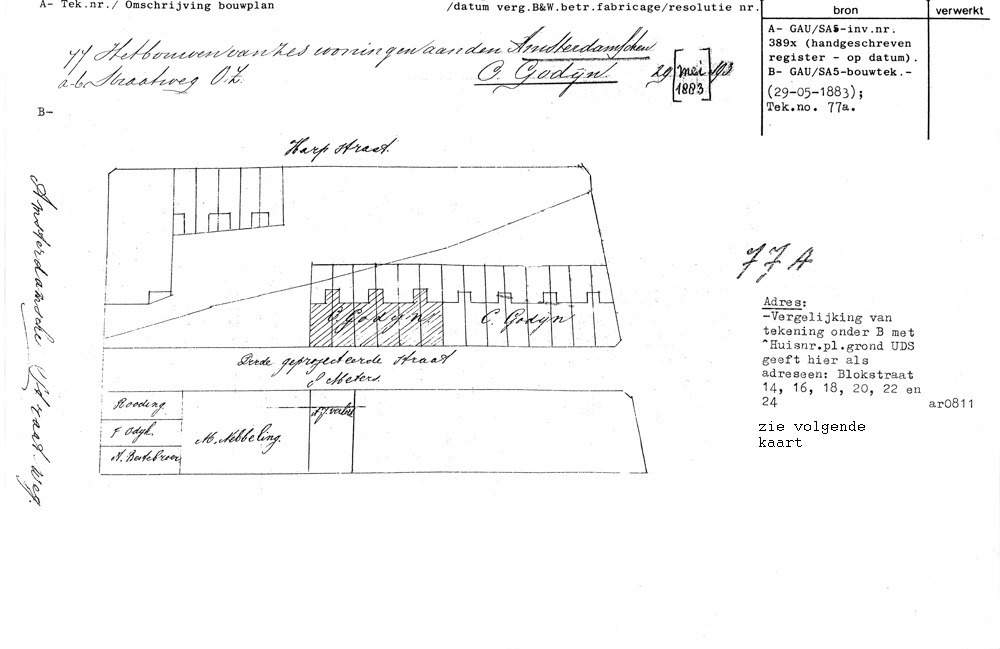 A- Tek.nr./ Omschrijving bouwplan /datum verg.B&W.betr.fabricage/resolutie nr. bron verwerkt
77 Het bouwen van zes woningen aan den Amsterdamschen
a-b Straatweg O.Z. C. Godijn. 29 [mei 1883] 193
A- GAU/SA5-inv.nr.
389x (handgeschreven
register - op datum).
B- GAU/SA5-bouwtek.-
(29-05-1883);
Tek.no. 77a.
B-
Harp straat.
Amsterdamsche Straat weg.
C. Godijn. C. Godijn
Derde geprojecteerde straat
8 Meters.
Rooding.
F Odijk.
M. Nebbeling.
77A
Adres:
-Vergelijking van
tekening onder B met
^Huisnr.pl.grond UDS
geeft hier als
adreseen: Blokstraat
14, 16, 18, 20, 22 en
24
ar0811
zie volgende
kaart